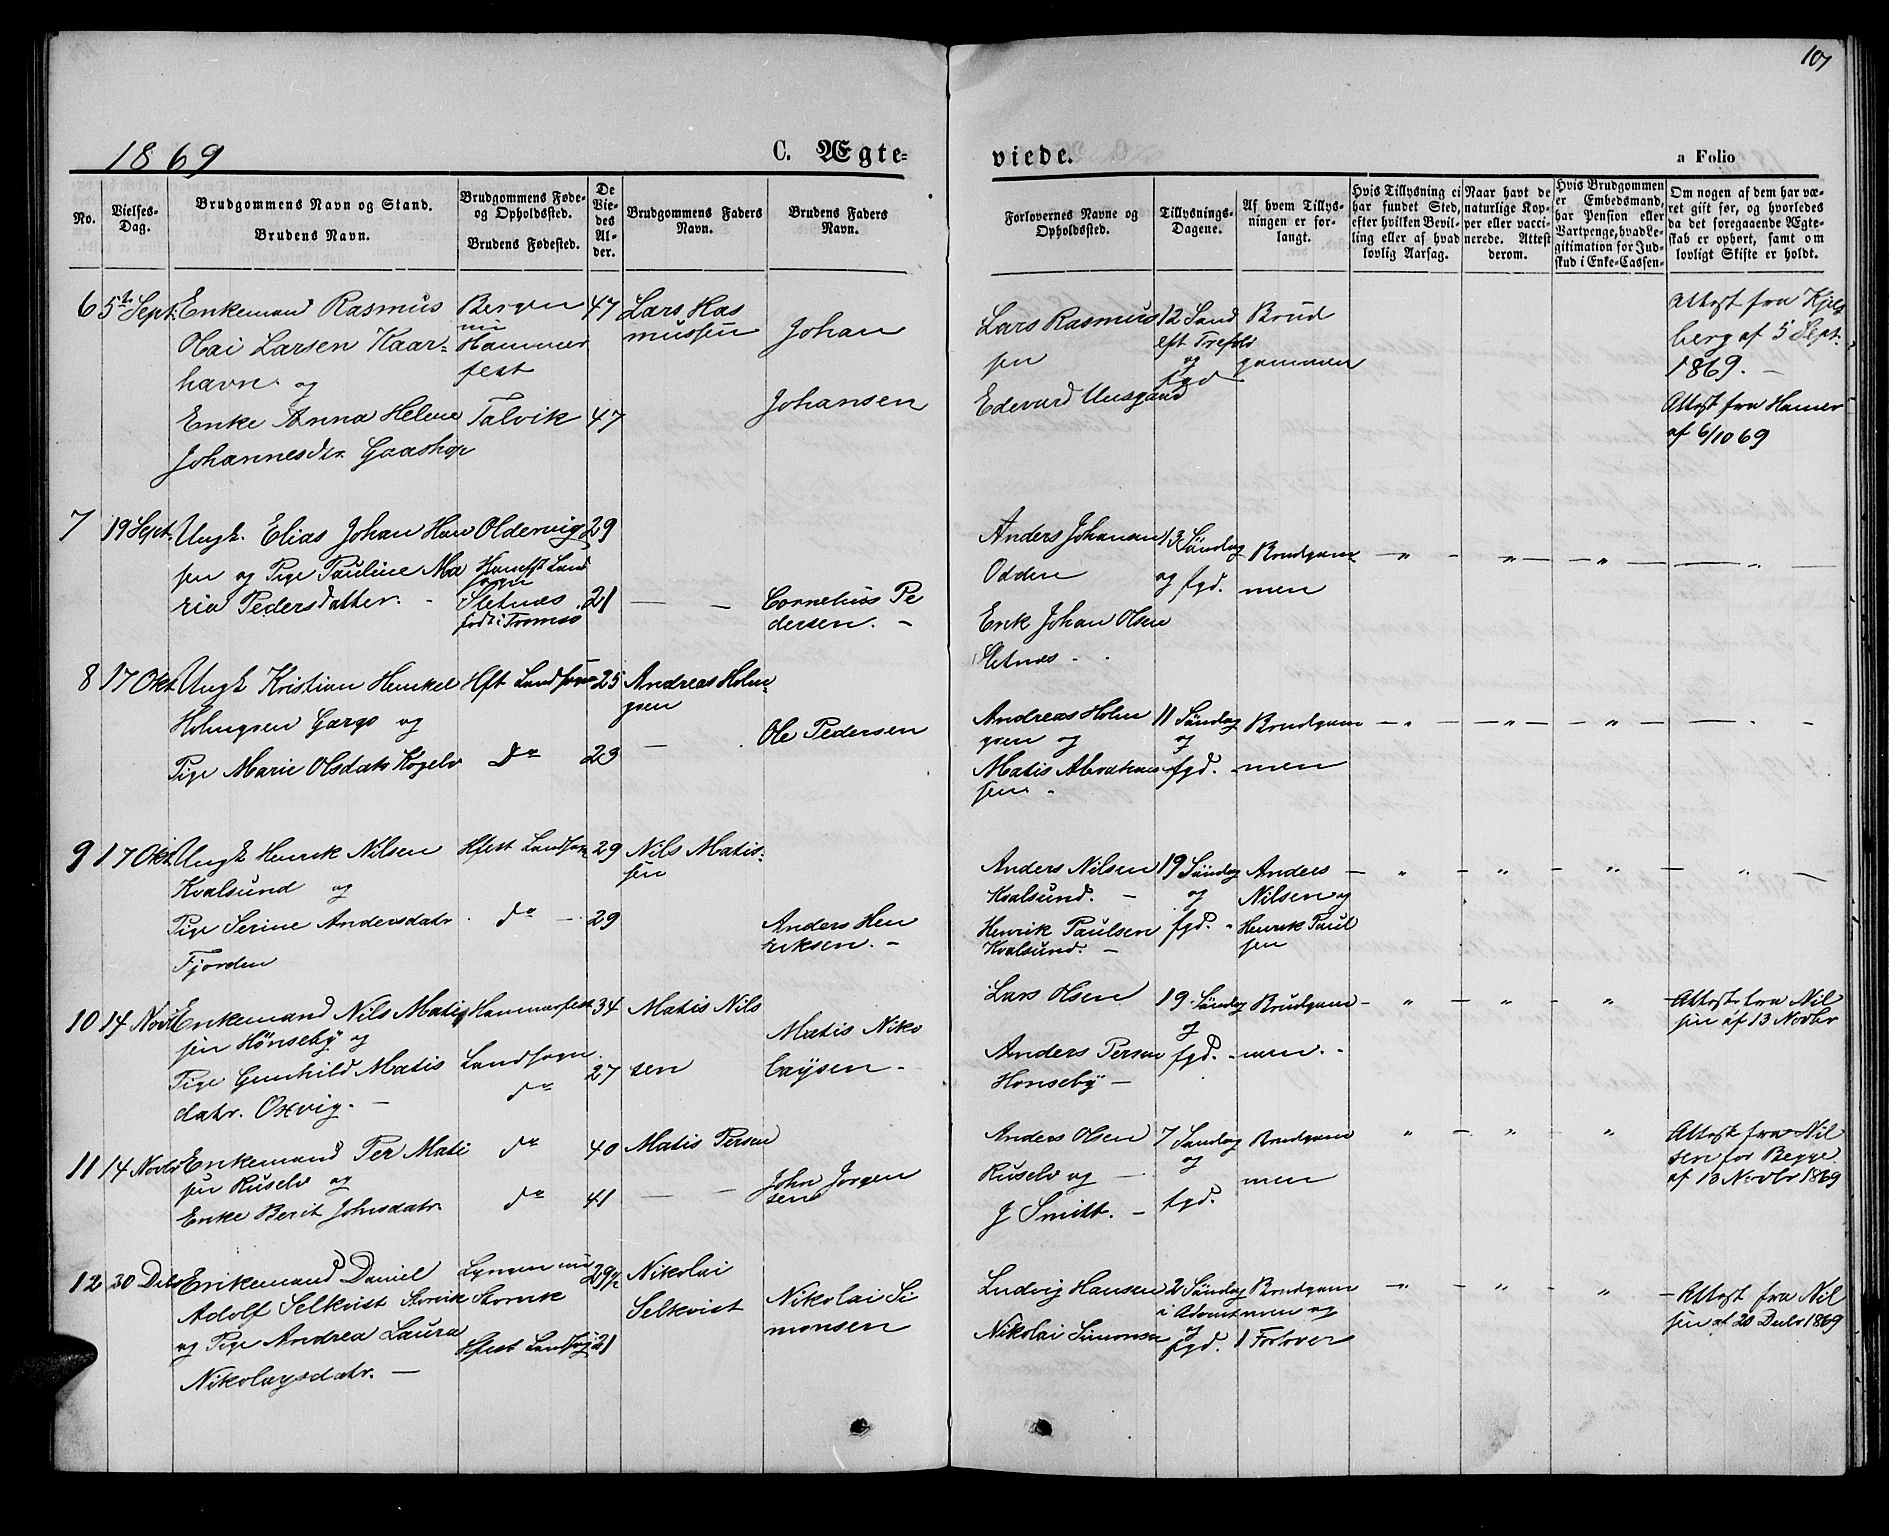 107
1869
C. Ægte-
viede.
a Folio
No.
Vielses-
Dag.
Brudgommens Navn og Stand.
Brudens Navn.
Brudgommens Føde-
og Opholdssted.
Brudens Fødested.
De
Vie-
des
Al-
der.
Brudgommens Faders
Navn.
Brudens Faders
Navn.
Forlovernes Navne og
Opholdssted.
Tillysnings-
Dagene.
Af hvem Tillys-
ningen er for-
langt.
Hvis Tillysning ei
har fundet Sted,
efter hvilken Bevil-
ling eller af hvad
lovlig Aarsag.
Naar havt de
naturlige Kop-
per eller vacci-
nerede. Attest
derom.
Hvis Brudgommen
er Embedsmand,
har Pension eller
Vartpenge, hvad Le-
gitimation for Ind-
skud i Enke-Cassen-
Om nogen af dem har væ-
ret gift før, og hvorledes
da det foregaaende Ægte-
skab er ophørt, samt om
lovligt Skifte er holdt.
6
5te Sept.
Enkemand Rasmus
Olai Larsen Kaar-
havn og
Enke Anna Helene
Johannesdtr. Gaashop
Bergen
nu
Hammer
fest
Talvik
47
47
Lars Ras
mussen
Johan
Johansen
Lars Rasmus
sen
Edevard
12 Sønd
eft Trefold
og
fgd
Brud
gommen
Attest fra Kjels
berg af 5 Sept.
1869. -
Attest fra Hamer
af 6/10 69
7
19 Sept.
Ungk. Elias Johan Han
sen og Pige Pauline Ma
ria Pedersdatter. -
Oldervig
Hamfst Land
sogn
Sletnæs
født i Tromsø
29
21
Cornelius Pe
dersen. -
Anders Johansen
Odden
Erik Johan Olsen
Sletnæs -
13 Søndag
og fgd.
Brudgom
men
8
17 Okt
Ungk Kristian Henrkel
Holmgsen Gargo og
Pige Marie Olsdatr Kogelv
Hft Landsogn
Do
25
23
Andreas Holm
gsen
Ole Pedersen
Andreas Holm
gsen og
Matis Abraham
sen -
11 Søndag
og
fgd.
Brudgom
men
9
17 Okt
Ungk Henrik Nilsen
Kvalsund og
Pige Serine Andersdatr
Fjorden
Hfest Landsogn
do -
29
29
Nils Matis-
sen
Anders Hen
riksen. -
Anders Nilsen
Kvalsund. -
Henrik Paulsen
Kvalsund. -
19 Søndag
og
fgd. -
Anders
Nilsen og
Henrik Paul
sen
10
14 Novbr
Enkemand Nils Matis
sen Hönseby og
Pige Gunhild Matis
datr. Oxvig. -
Hammerfest
Landsogn
do
34
27
Matis Nils
sen
Matis Niko
laysen -
Lars Olsen
Anders Persen
Honseby -
19 Søndag
og
fgd. -
Brudgom
men. -
Attest fra Nil
sen af 13 Novbr
11
14 Novbr
Enkemand Per Mati
sen Ruselv og
Enke Berit Johnsdatr
do
do
40
41
Matis Persen
John Jorgen
sen
Anders Olsen
Ruselv og -
J Smitt. -
7 Søndag
og
fgd.
Brudgom
men
Attest fra Nil
sen for Begge
af 13 Novbr 1869
12
30 Debr
Enkemand Daniel
Adolf Selkvist Storvik
og Pige Andrea Laura
Nikolaysdatr. -
Lyngen nu
Storvik
Hfest Landsogn
29 1/2
21
Nikolai
Selkvist
Nikolai Si
monsen
Ludvig Hansen
Nikolai Simonsen
2 Søndag
i Advent
og
fgd.
Brudgom
men og
1 Forlover
Attest fra Nil
sen af 20 Debr 1869